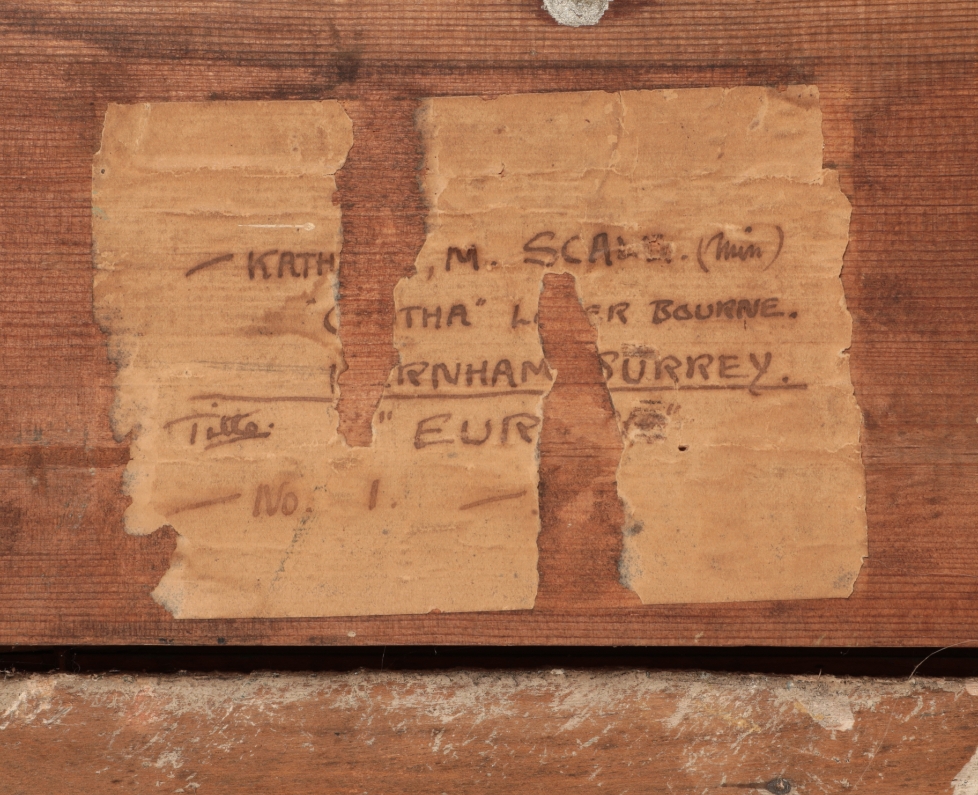 — KATH , M. SCALE. (Min)
"THA" L ER BOURNE.
RNHAM SURREY.
Title. "EUR "
— No. 1. —